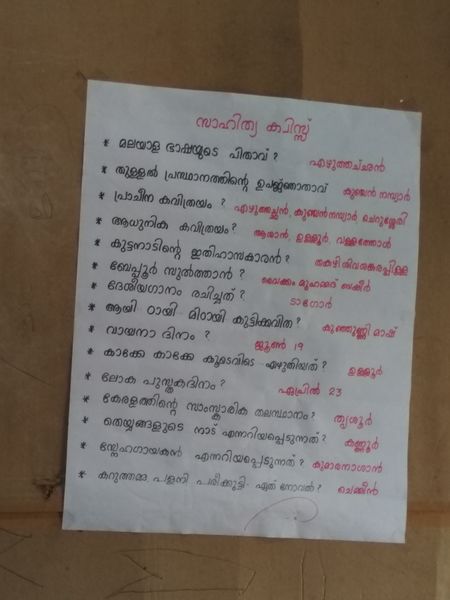 സാഹിത്യ ക്വിസ്സ്
* മലയാള ഭാഷയുടെ പിതാവ്? എഴുത്തച്ഛൻ
* തുള്ളൽ പ്രസ്ഥാനത്തിന്റെ ഉപജ്ഞാതാവ് കുഞ്ചൻ നമ്പ്യാർ
* പ്രാചീന കവിത്രയം? എഴുത്തച്ഛൻ, കുഞ്ചൻനമ്പ്യാർ, ചെറുശ്ശേരി
* ആധുനിക കവിത്രയം? ആശാൻ, ഉള്ളൂർ, വള്ളത്തോൾ
* കുട്ടനാടിന്റെ ഇതിഹാസകാരൻ? തകഴി ശിവശങ്കരപ്പിള്ള
* ബേപ്പൂർ സുൽത്താൻ? വൈക്കം മുഹമ്മദ് ബഷീർ
* ദേശീയഗാനം രചിച്ചത്? ടാഗോർ
* ആയി ഠായി മിഠായി കുട്ടിക്കവിത? കുഞ്ഞുണ്ണി മാഷ്
* വായനാ ദിനം? ജൂൺ 19
* കാക്കേ കാക്കേ കൂടെവിടെ എഴുതിയത്? ഉള്ളൂർ
* ലോക പുസ്തകദിനം? ഏപ്രിൽ 23
* കേരളത്തിന്റെ സാംസ്കാരിക തലസ്ഥാനം? തൃശൂർ
* തെയ്യങ്ങളുടെ നാട് എന്നറിയപ്പെടുന്നത്? കണ്ണൂർ
* സ്നേഹഗായകൻ എന്നറിയപ്പെടുന്നത്? കുമാരനാശാൻ
* കറുത്തമ്മ, പളനി, പരീക്കുട്ടി- ഏത് നോവൽ? ചെമ്മീൻ